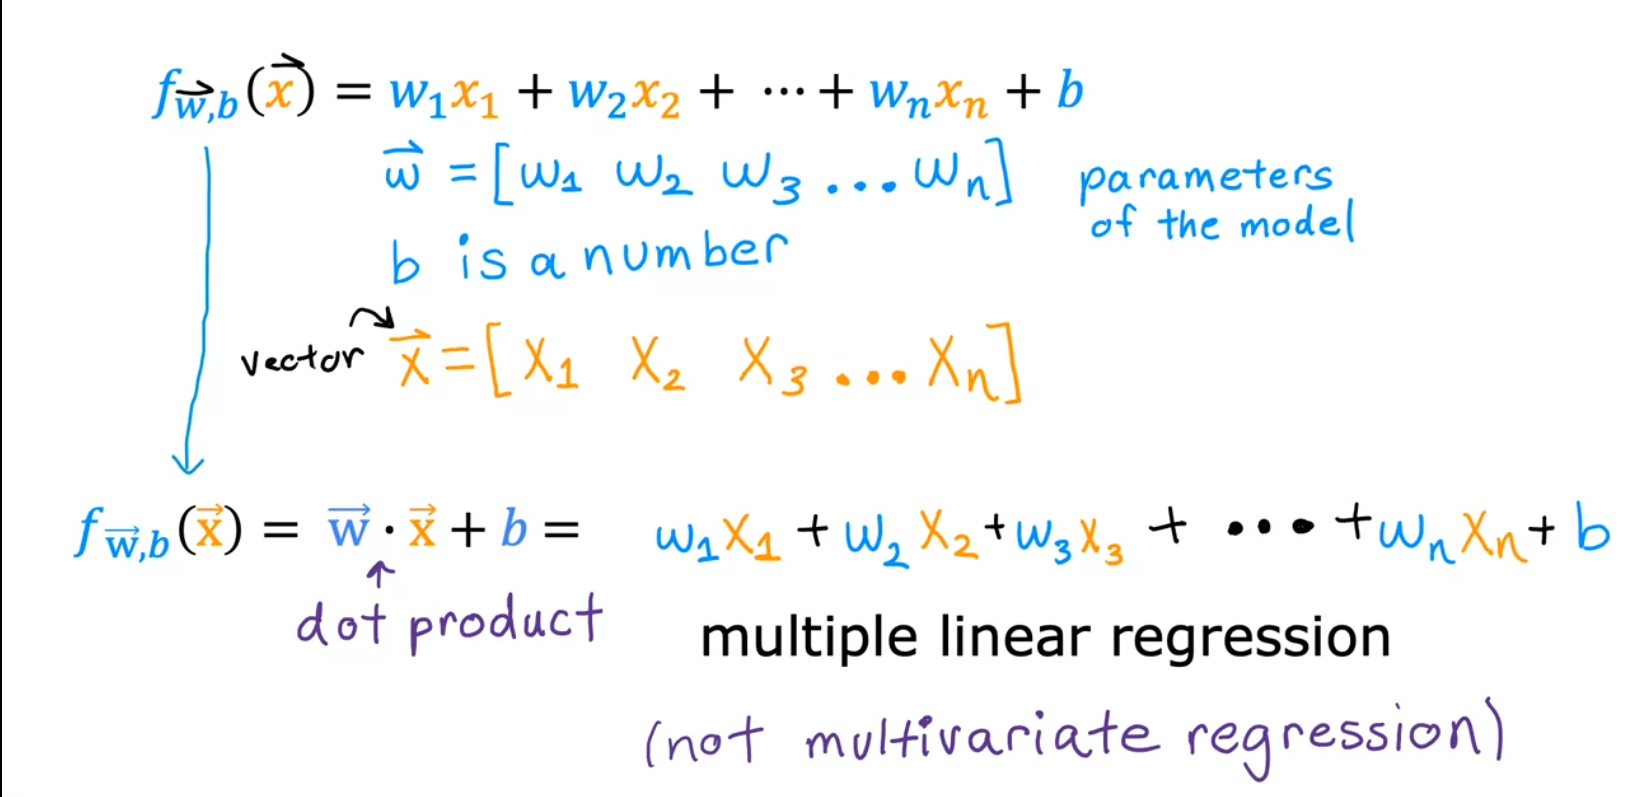 f_{w⃗,b}(x⃗) = w₁x₁ + w₂x₂ + ⋯ + wₙxₙ + b
w⃗ = [w₁ w₂ w₃ ... wₙ] parameters of the model
b is a number
vector x⃗ = [x₁ x₂ x₃ ... xₙ]
f_{w⃗,b}(x⃗) = w⃗ · x⃗ + b = w₁x₁ + w₂x₂ + w₃x₃ + ⋯ + wₙxₙ + b
dot product
multiple linear regression
(not multivariate regression)